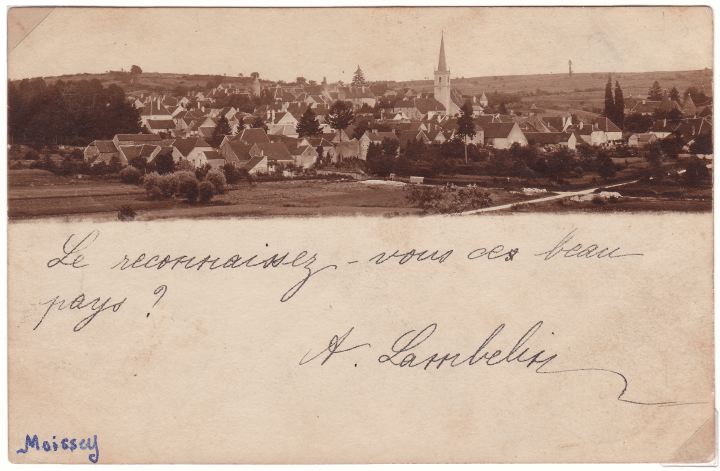 Le reconnaissez-vous ces beau
pays ?
A. Lambelin
Moissey